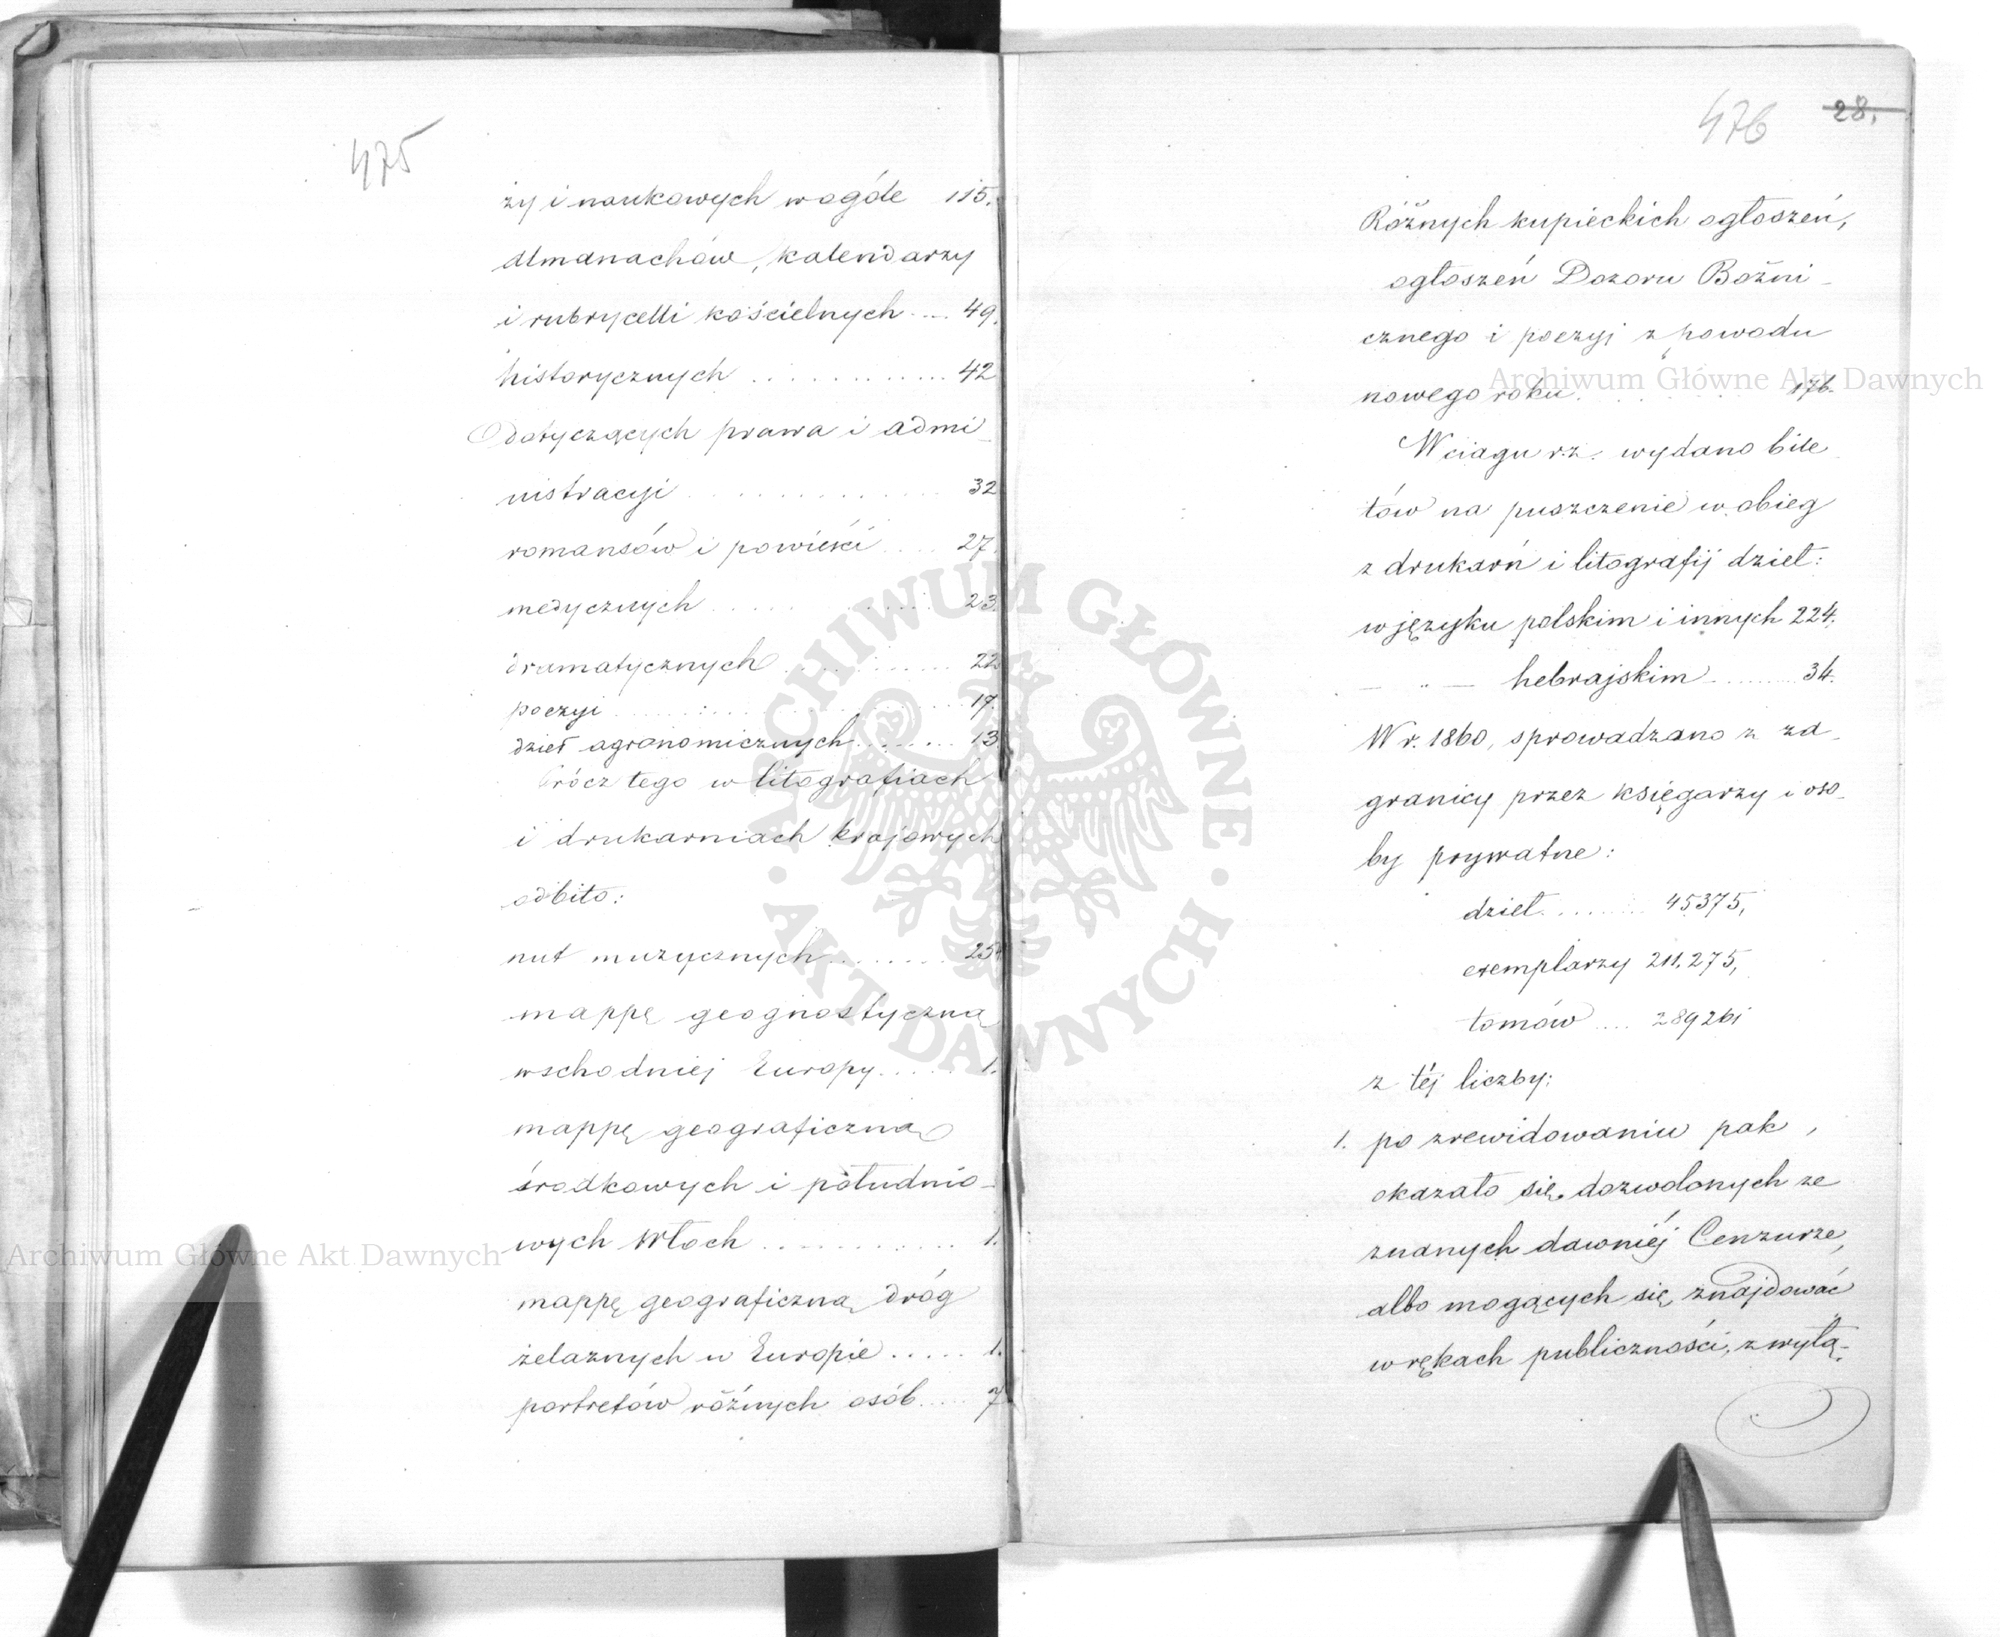 475
ży i naukowych wogóle 115.
almanachów, kalendarzy
i rubrycelli kościelnych .... 49.
historycznych ............ 42
dotyczących prawa i admi_
nistracyi .............. 32
romansów i powieści .... 27.
medycznych ............ 23.
dramatycznych ............ 22
poezyi .................. 17.
dzieł agronomicznych ........ 13
Prócz tego w litografiach
i drukarniach krajowych
odbito:
nut muzycznych ........ 254
mappę geognostyczną
wschodniej Europy ..... 1.
mappę geograficzną
środkowych i południo_
wych Włoch ............ 1.
mappę geograficzną dróg
żelaznych w Europie ..... 1.
portretów różnych osób ..... 7
476 28.
Różnych kupieckich ogłoszeń,
ogłoszeń Dozoru Bożni_
cznego i poezyj z powodu
nowego roku ........ 176.
W ciagu r.z. wydano bile_
tów na puszczenie w obieg
z drukarń i litografij dzieł:
w języku polskim i innych 224.
— „ — hebrajskim ......... 34.
W r. 1860, sprowadzono z za_
granicy przez księgarzy i oso_
by prywatne:
dzieł ......... 45375,
exemplarzy 211.275,
tomów .... 28926;
z téj liczby:
1. po zrewidowaniu pak,
okazało się dozwolonych ze
znanych dawniéj Cenzurze,
albo mogących się znajdować
w rękach publiczności, z wyłą_
Archiwum Główne Akt Dawnych
Archiwum Główne Akt Dawnych
ARCHIWUM GŁÓWNE · AKT DAWNYCH ·